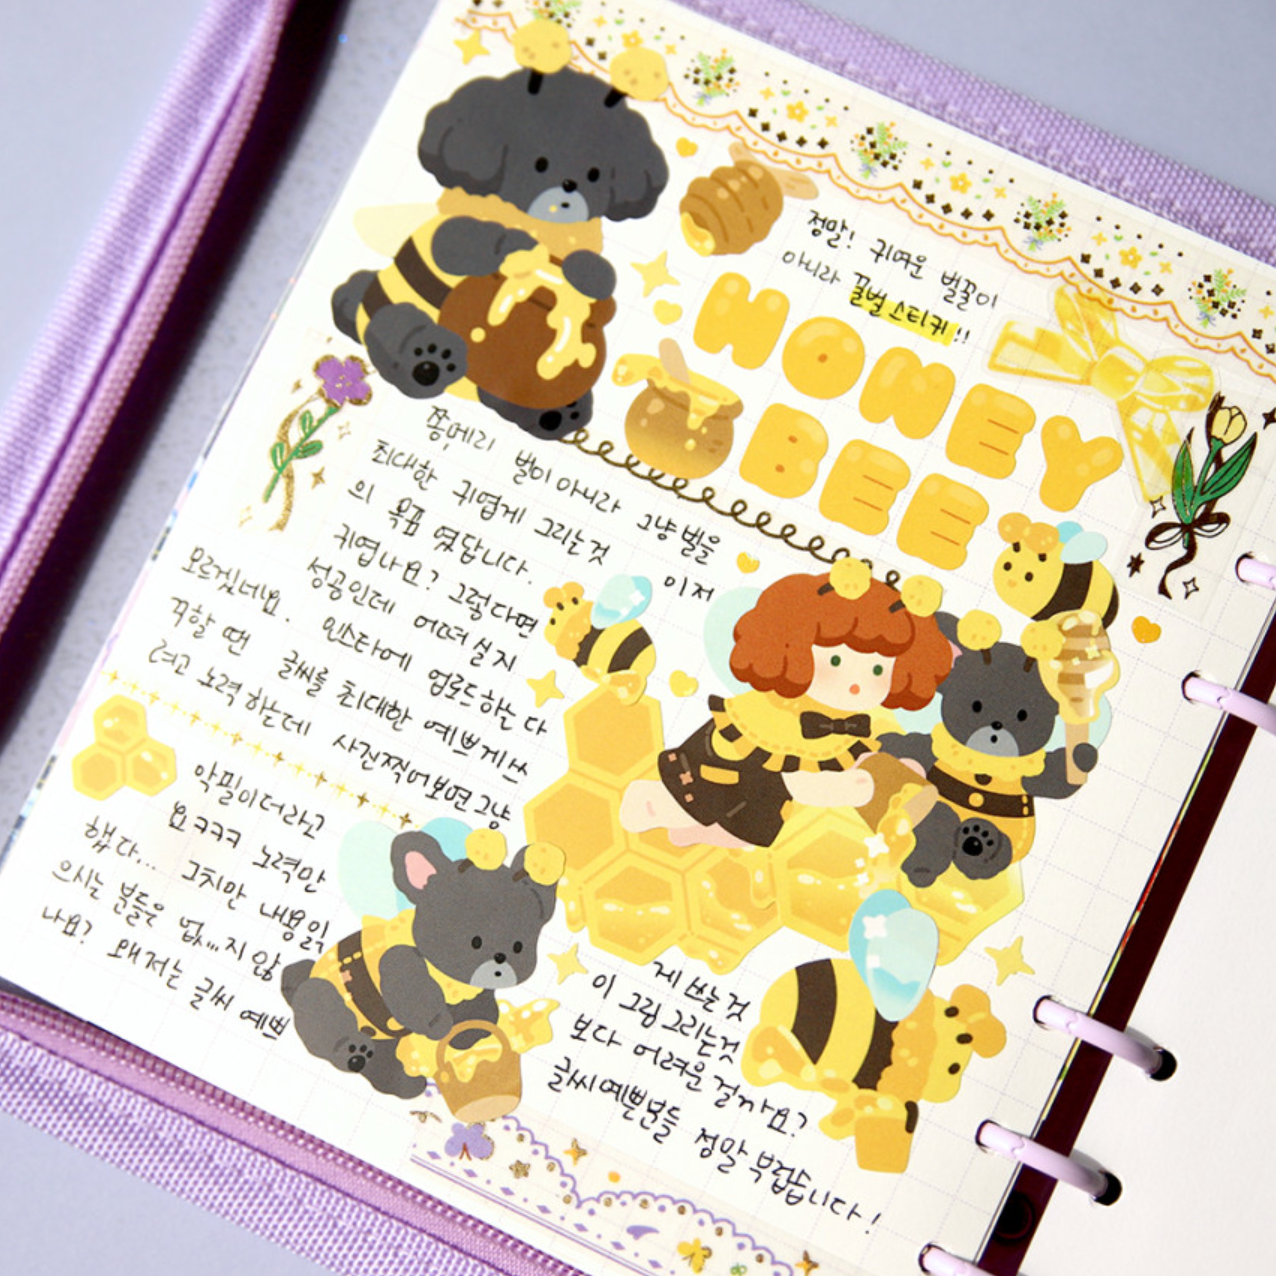 정말! 귀여운 벌꿀이
아니라 꿀벌 스티커!!
HONEY
BEE
쫑메리 벌이 아니라 그냥 벌을
최대한 귀엽게 그리는것 이 저
의 목표 였답니다.
귀엽나요? 그렇다면
성공인데 어떠실지
모르겠네요. 인스타에 업로드하는 다
꾸할 땐 글씨를 최대한 예쁘게쓰
려고 노력하는데 사진찍어보면 그냥
악필이더라고
요ㅋㅋㅋ 노력만
했다... 그치만 내용읽
으시는 분들은 없...지 않
나요? 왜 저는 글씨 예쁘
게 쓰는 것
이 그림 그리는것
보다 어려운 걸까요?
글씨예쁜분들 정말 부럽습니다!